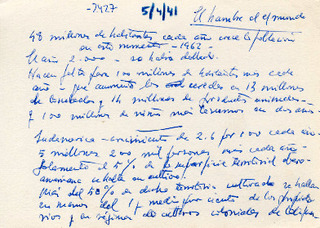 -7427
5/4/41
El hambre el el mundo
48 millones de habitantes cada año crece la población
en este momento - 1962 -
El año 2.000 - se habrá doblado.
Hacen falta para 100 millones de habitantes mas cada
año - que aumenten los cereales en 13 millones
de toneladas y 14 millones de productos animales -
y 100 millones de niños más tenemos en dos años
Sudamerica - crecimiento de 2.6 por 100 cada año
5 millones 200 mil personas más cada año -
Solamente el 5% de la superficie territorial
americana es en cultivo.
Más del 50% de dicho territorio cultivado se hallan
en manos del 1 y medio por ciento de los propieta
rios y en régimen de cultivos coloniales de